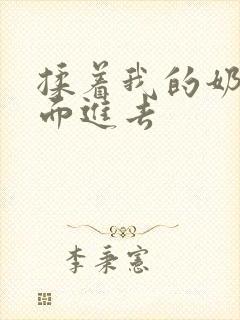 揉着我的奶
而进去
李秉宪